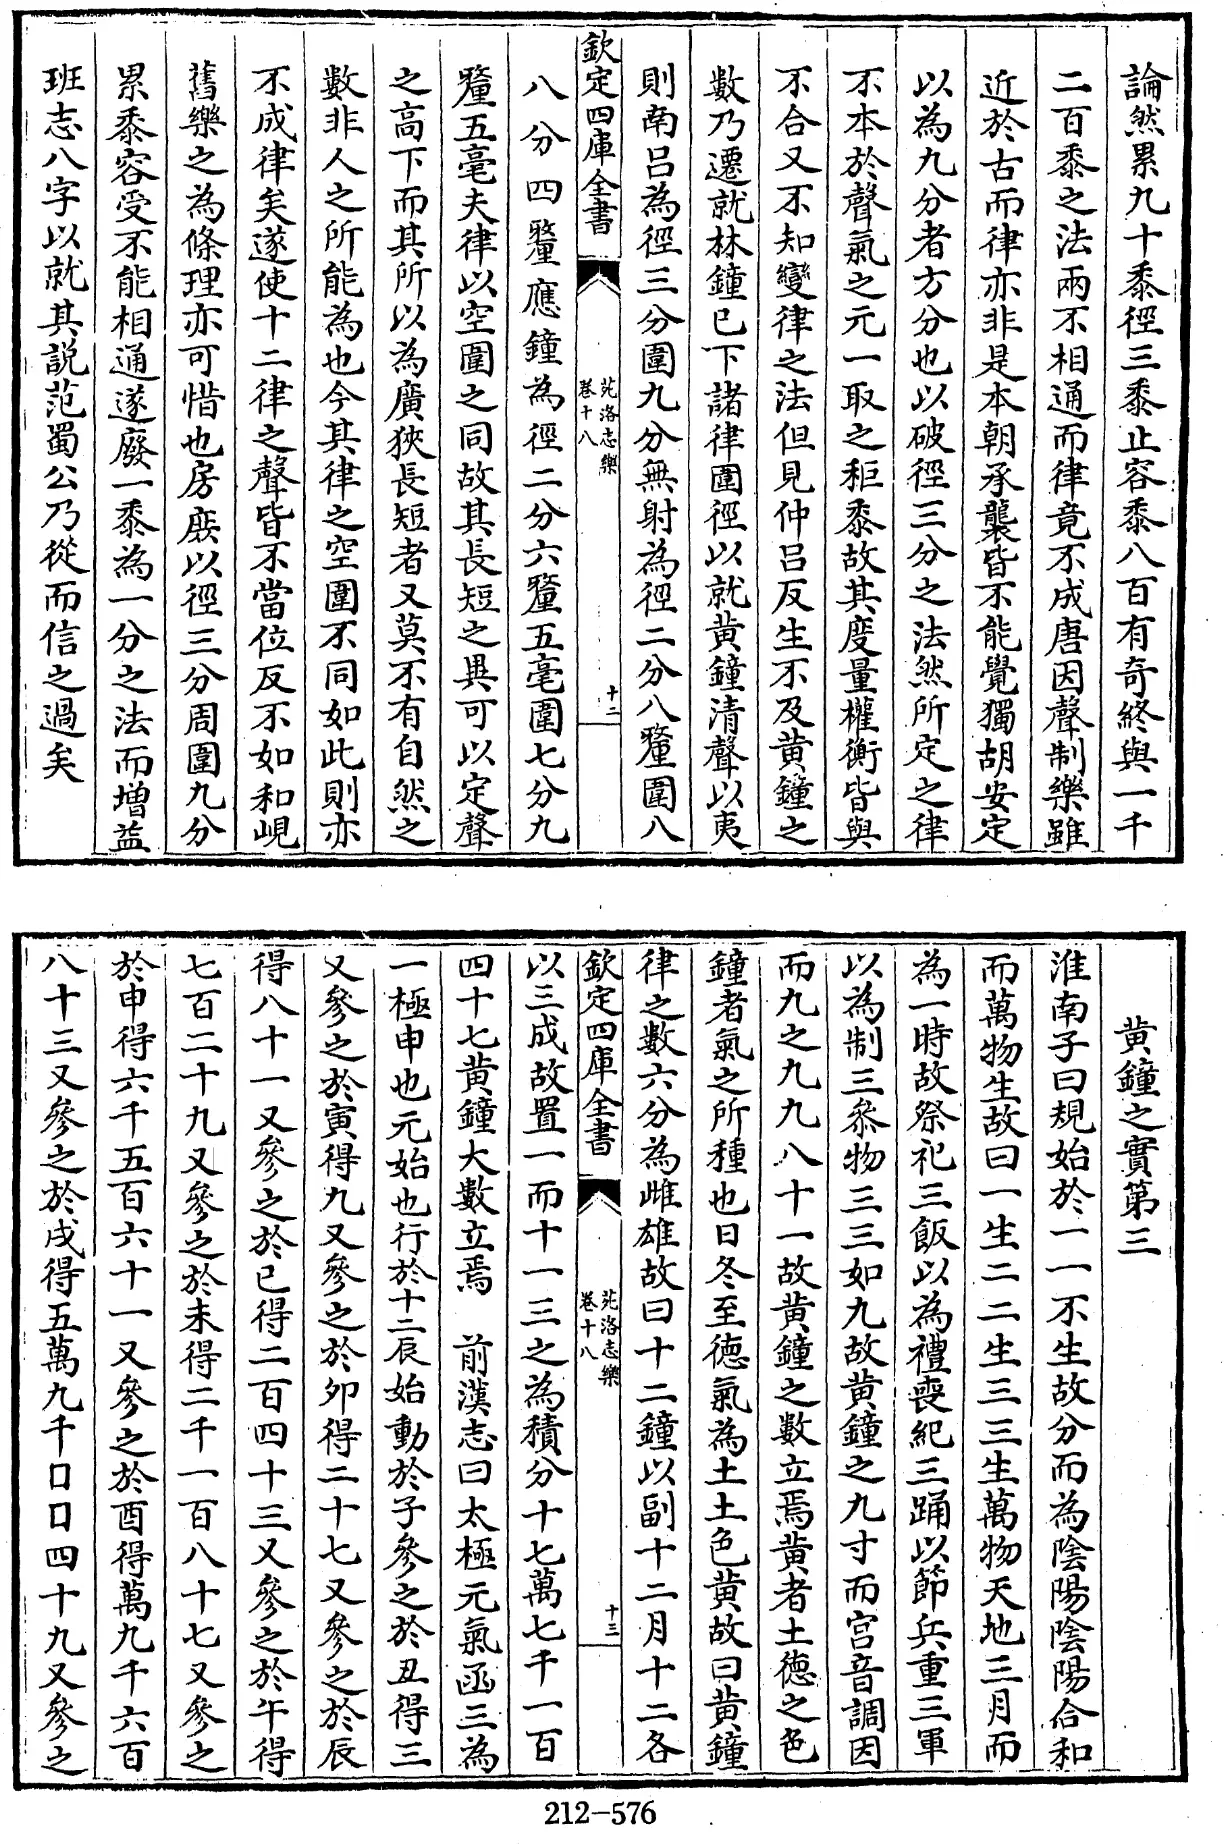 論然累九十黍徑三黍止容黍八百有奇終與一千
二百黍之法兩不相通而律竟不成唐因聲制樂雖
近於古而律亦非是本朝承襲皆不能覺獨胡安定
以為九分者方分也以破徑三分之法然所定之律
不本於聲氣之元一取之秬黍故其度量權衡皆與
不合又不知變律之法但見仲呂反生不及黃鐘之
數乃遷就林鐘已下諸律圍徑以就黃鐘清聲以夷
則南呂為徑三分圍九分無射為徑二分八釐圍八
欽定四庫全書
苑洛志樂
卷十八
十二
八分四釐應鐘為徑二分六釐五毫圍七分九
釐五毫夫律以空圍之同故其長短之異可以定聲
之高下而其所以為廣狹長短者又莫不有自然之
數非人之所能為也今其律之空圍不同如此則亦
不成律矣遂使十二律之聲皆不當位反不如和峴
舊樂之為條理亦可惜也房庶以徑三分周圍九分
累黍容受不能相通遂廢一黍為一分之法而增益
班志八字以就其說范蜀公乃從而信之過矣
黃鐘之實第三
淮南子曰規始於一一不生故分而為陰陽陰陽合和
而萬物生故曰一生二二生三三生萬物天地三月而
為一時故祭祀三飯以為禮喪紀三踊以節兵重三軍
以為制三叅物三三如九故黃鐘之九寸而宮音調因
而九之九九八十一故黃鐘之數立焉黃者土德之色
鐘者氣之所種也日冬至德氣為土土色黃故曰黃鐘
律之數六分為雌雄故曰十二鐘以副十二月十二各
欽定四庫全書
苑洛志樂
卷十八
十三
以三成故置一而十一三之為積分十七萬七千一百
四十七黃鐘大數立焉　前漢志曰太極元氣函三為
一極中也元始也行於十二辰始動於子參之於丑得三
又參之於寅得九又參之於卯得二十七又參之於辰
得八十一又參之於巳得二百四十三又參之於午得
七百二十九又參之於未得二千一百八十七又參之
於申得六千五百六十一又參之於酉得萬九千六百
八十三又參之於戌得五萬九千口口四十九又參之
212-576